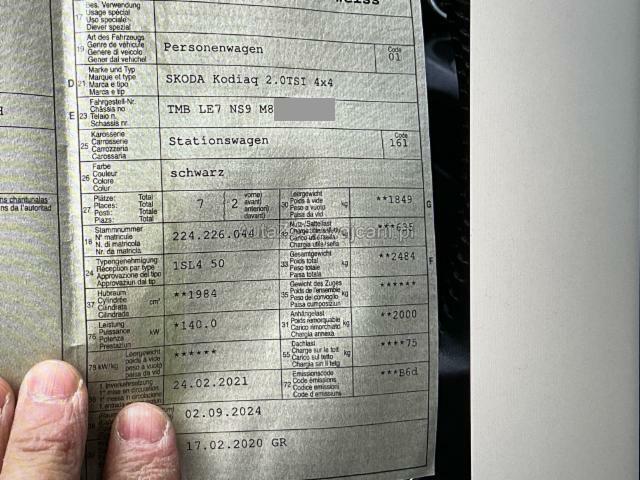 17 Bes. Verwendung
Usage spécial
Uso speciale
Diever spezial
19 Art des Fahrzeugs
Genre de véhicule
Genere di veicolo
Gener dal vehichel
Personenwagen
Code
01
D 21 Marke und Typ
Marque et type
Marca e tipo
Marca e tip
SKODA Kodiaq 2.0TSI 4x4
E 23 Fahrgestell-Nr.
Châssis no
Telaio n.
Schassis nr.
TMB LE7 NS9 M8
25 Karosserie
Carrosserie
Carrozzeria
Carossaria
Stationswagen
Code
161
26 Farbe
Couleur
Colore
Colur
schwarz
ns chantunalas
ns da l'autoritad
27 Plätze: Total
Places: Total
Posti: Totale
Plazs: Total
7
2
vorne)
avant)
anteriori)
davant)
30 Leergewicht
Poids à vide
Peso a vuoto
Paisa da vid
kg
**1849
G
18 Stammnummer
N° matricule
N. di matricola
Nr. da matricla
224.226.044
Nutz-/Sattellast
**635
24 Typengenehmigung
Réception par type
Approvazione del tipo
Approvaziun dal tip
1SL4 50
33 Gesamtgewicht
Poids total
Peso totale
Paisa totala
kg
**2484
F
37 Hubraum
Cylindrée
Cilindrata
Cilindrada
cm³
**1984
35 Gewicht des Zuges
Poids de l'ensemble
Peso del convoglio
Paisa cumposiziun
kg
******
76 Leistung
Puissance
Potenza
Prestaziun
kW
*140.0
31 Anhängelast
Poids remorquable
Carico rimorchiato
Chargia annexa
kg
**2000
78 kW/kg
Leergewicht
poids à vide
peso a vuoto
paisa da vid
******
55 Dachlast
Charge sur le toit
Carico sul tetto
Chargia sin il tetg
kg
****75
1. Inverkehrsetzung
1re mise en circulation
24.02.2021
72 Emissionscode
Code émissions
Codice emissioni
Code d'emissiuns
***B6d
02.09.2024
17.02.2020 GR